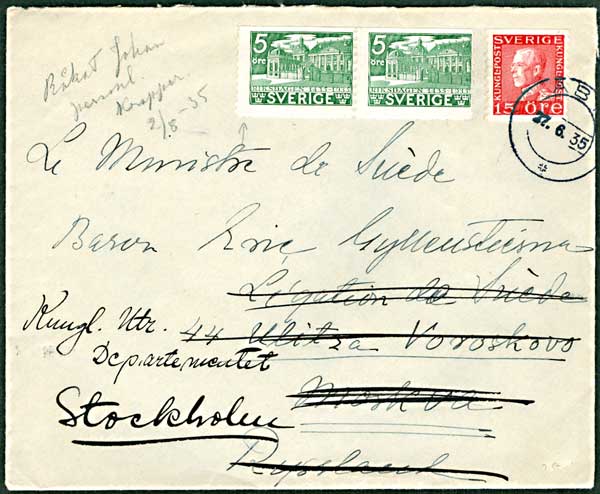 5 ÖRE
RIKSDAGEN 1435-1935
SVERIGE
5 ÖRE
RIKSDAGEN 1435-1935
SVERIGE
SVERIGE
KUNGL·POST
KUNGL·POST
15 ÖRE
27. 6. 35
Johan
2/8 35
Le Ministre de Suède
Baron Eric Gyllenstierna
Légation de Suède
Kungl. Utr. 44 Ulitza Voroskovo
Departementet
Moskva
Stockholm
Ryssland